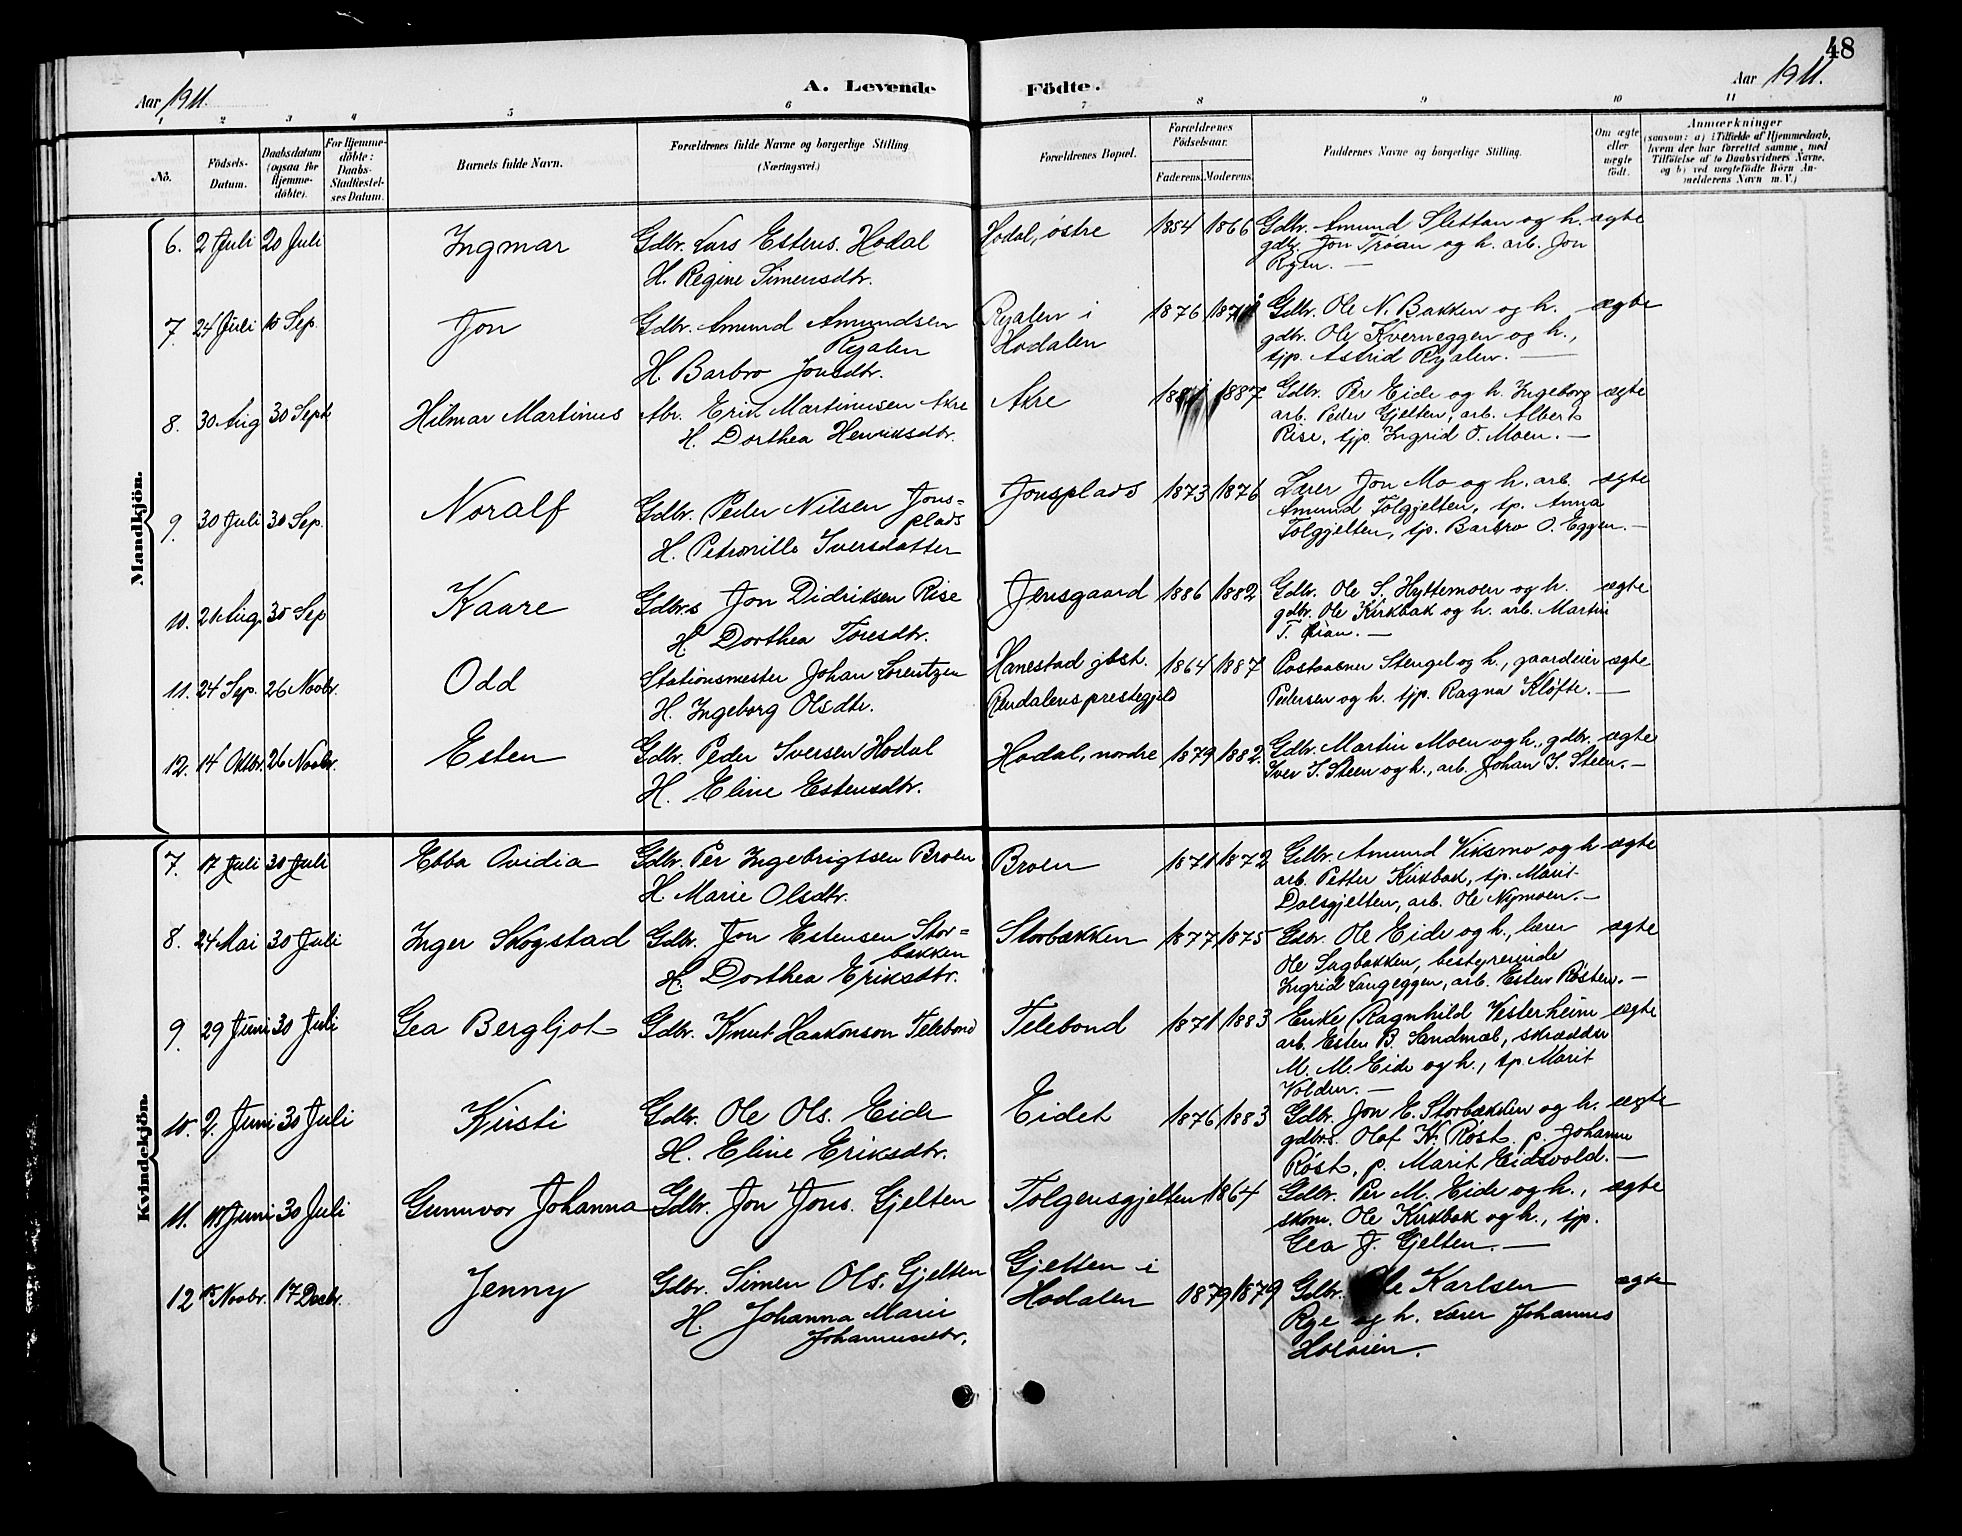 48
Aar 1911.
A. Levende
Födte.
Aar 1911.
1 2 3 4 5 6 7 8 9 10 11
No.
Födsels-
Datum.
Daabsdatum
(ogsaa for
Hjemme-
döbte).
For Hjemme-
döbte:
Daabs-
Stadfæstel-
ses Datum.
Barnets fulde Navn.
Forældrenes fulde Navne og borgerlige Stilling
(Næringsvei.)
Forældrenes Bopæl.
Forældrenes
Födselsaar.
Faderens. Moderens.
Faddernes Navne og borgerlige Stilling.
Om ægte
eller
uægte
födt.
Anmærkninger
(saasom: a) i Tilfælde af Hjemmedaab,
hvem der har forrettet samme, med
Tilföielse af to Daabsvidners Navne,
og b) ved uægtefödte Börn An-
melderens Navn m. V.)
Mandkjön.
6. 2 Juli 20 Juli Ingmar
Gdbr. Lars Estens. Hodal
H. Regine Simensdtr.
Hodal, østre 1854 1866
Gdbr. Amund Slettan og h.
gdbr. Jon Trøan og h. arb. Jon
Ryen. —
ægte
7. 24 Juli 10 Sep. Jon
Gdbr. Amund Amundsen
Ryalen
H. Barbro Jonsdtr.
Ryalen i
Hodalen
1876
Gdbr. Ole N. Bakken og h.
gdbr. Ole Kverneggen og h.,
tjp. Astrid Ryalen. —
ægte
8. 30 Aug 30 Sept Hilmar Martinus
Abr. Erik Martinusen Akre
H. Dorthea Henriksdtr.
Akre 1881 1887
Gdbr. Per Eide og h. Ingeborg
arb. Peder Gjelten, arb. Albert
Rise, tjp. Ingrid O. Moen. —
ægte
9. 30 Juli 30 Sep. Noralf
Gdbr. Peder Nilsen Jons=
plads
H. Petronille Iversdatter
Jonsplads 1873 1876
Lærer Jon Mo og h. arb.
Amund Tolgjelten, tp. Anna
Tolgjelten, tjp. Barbro O. Eggen. —
ægte
10. 21 Aug. 30 Sep Kaare
Gdbrs Jon Didriksen Rise
H. Dorthea Toresdtr.
Jensgaard 1886 1882
Gdbr. Ole S. Hyttemoen og h.
gdbr. Ole Kirkbak og h. arb. Martin
T. Øian. —
ægte
11. 24 Sep. 26 Novbr. Odd
Stationsmester Johan Lorentzen
H. Ingeborg Olsdtr.
Hanestad jbst.
Rendalens prestegjeld
1864 1887
Postaabner Stengel og h., gaardeier
Pedersen og h. tjp. Ragna Kløfte. —
ægte
12. 14 Oktbr. 26 Novbr. Esten
Gdbr. Peder Iversen Hodal
H. Eline Estensdtr.
Hodal, nordre 1879 1882
Gdbr. Martin Moen og h., gdbr.
Iver I. Steen og h., arb. Johan I. Steen. —
ægte
Kvindekjön.
7. 17 Juli 30 Juli Ebba Ovidia
Gdbr. Per Ingebrigtsen Broen
H. Marie Olsdtr.
Broen 1871 1872
Gdbr. Amund Viksmo og h
arb. Petter Kirkbak, tp. Marit
Dalsgjelten, arb. Ole Nymoen. —
ægte
8. 24 Mai 30 Juli Inger Skogstad
Gdbr. Jon Estensen Stor=
bakken
H. Dorthea Eriksdtr.
Storbækken 1877 1875
Gdbr. Ole Eide og h., lærer
Ole Sagbakken, bestyrerinde
Ingrid Langeggen, arb. Esten Røsten. —
ægte
9. 29 Juni 30 Juli Gea Bergljot
Gdbr. Knut Haakonson Telebond
Telebond 1871 1883
Enke Ragnhild Vesterheim
arb. Esten B. Sandmæl, skrædder
M. M. Eide og h., tp. Marit
Volden. —
ægte
10. 2. Juni 30 Juli Kirsti
Gdbr. Ole Ols. Eide
H. Eline Eriksdtr.
Eidet 1876 1883
Gdbr. Jon E. Storbækken og h.
gdbrs. Olaf K. Røst. p. Johanne
Røst, p. Marit Eidsvold. —
ægte
11. 18 Juni 30 Juli Gunnvor Johanna
Gdbr. Jon Jons. Gjelten
Tolgensgjelten 1864
Gdbr. Per M. Eide og h.,
skom. Ole Kirkbak og h., tjp.
Gea J. Gjelten. —
ægte
12 15 Novbr. 17 Decbr. Jenny
Gdbr. Simen Ols. Gjelten
H. Johanna Marie
Johannesdtr.
Gjelten i
Hodalen
1879 1879
Gdbr. Ole Karlsen
Rye og h. Lærer Johannes
Holøien.
ægte